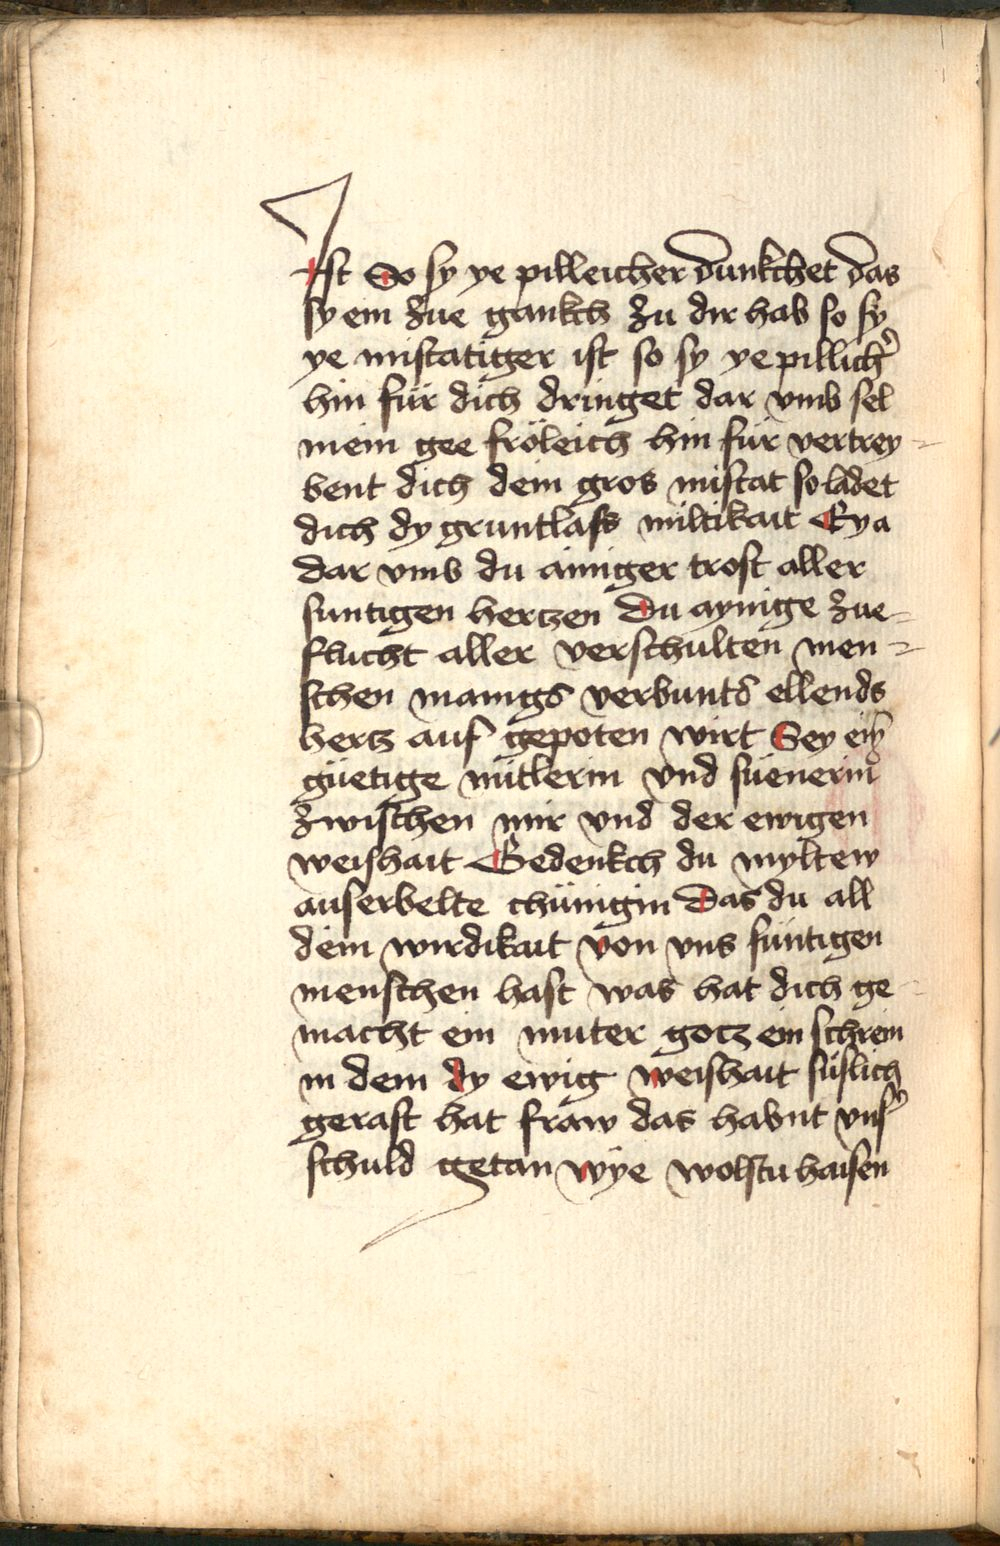 Ist So sy ye pilleicher dunkchet das
sy ein zue gankch zu dir hab so sy
ye mistatiger ist so sy ye pillich᾽
hin für dich dringet dar vmb sel
mein gee fröleich hin für vertrey=
bent dich dein gros mistat so ladet
dich dy gruntlass miltikait Eya
dar vmb du ainiger trost aller
suntigen hertzen Du aynige zue=
flucht aller verschulten men=
schen manigs verbunts ellends
hertz auf gepoten wirt Sey ein
güetige mitlerin vnd süenerin
zwischen mir vnd der ewigen
weishait Gedenkch du myltew
auserbelte chünigin Das du all
dein wirdikait von vns süntigen
menschen hast was hat dich ge=
macht ein muter gotz ein schrein
in dem dy ewig weishait süslich
gerast hat fraw das habnt vns᾽
schuld getan wye wolstu haisen